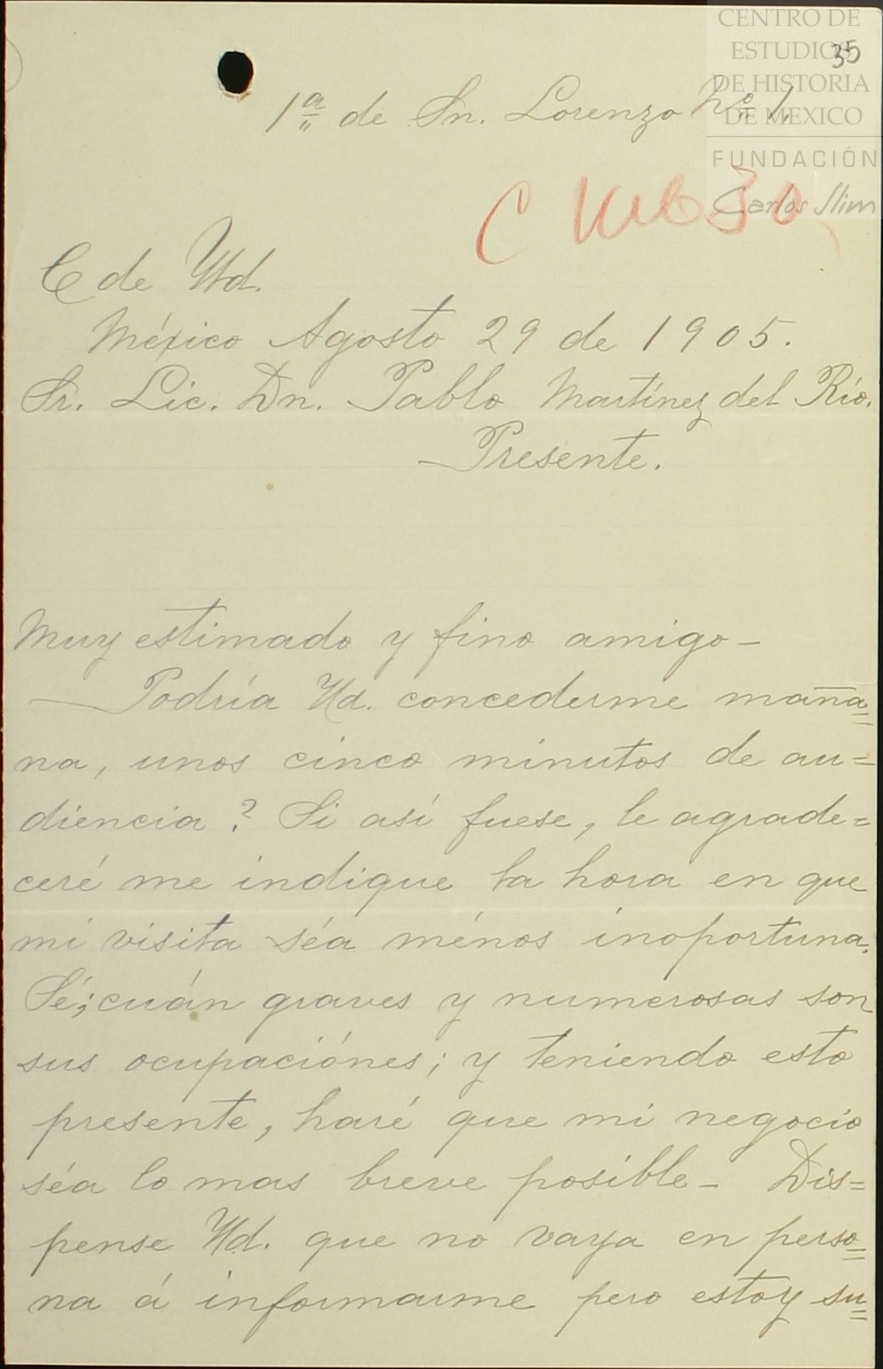 CENTRO DE
ESTUDIOS
DE HISTORIA
DE MEXICO
FUNDACIÓN
Carlos Slim
35
1ª de Sn. Lorenzo Nº 1.
C de Ud.
México Agosto 29 de 1905.
Sr. Lic. Dn. Pablo Martínez del Río.
Presente.
Muy estimado y fino amigo—
—Podría Ud. concederme maña=
na, unos cinco minutos de au=
diencia? Si así fuese, le agrade=
ceré me indique la hora en que
mi visita séa ménos inoportuna.
Sé; cuán graves y numerosas son
sus ocupaciónes; y teniendo esto
presente, haré que mi negocio
séa lo mas breve posible— Dis=
pense Ud. que no vaya en perso=
na á informarme pero estoy su=